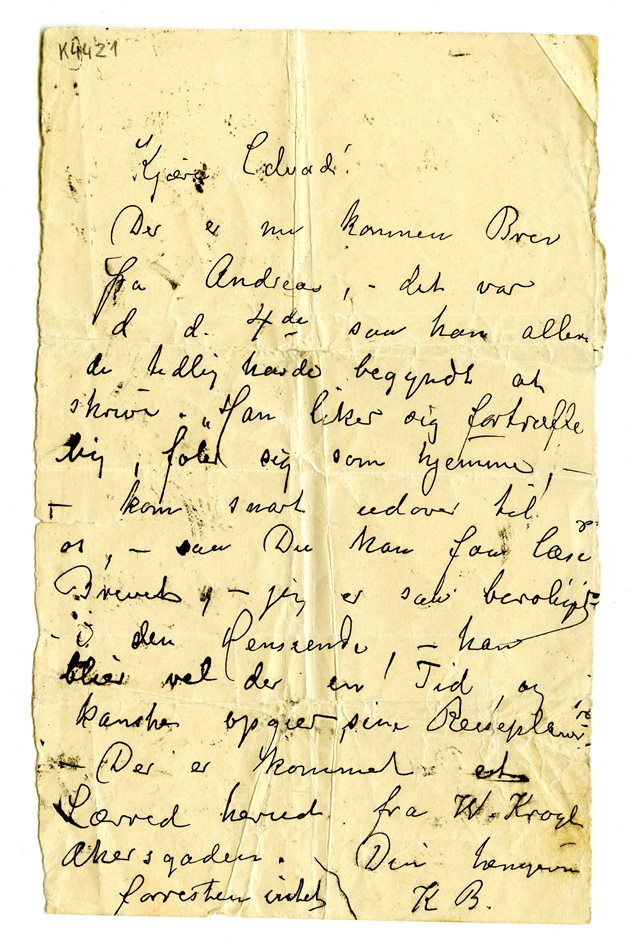 K4421
Kjære Edvard!
Der er nu kommen Brev
fra Andreas, – det var
d d. 4de saa han aller
de tidlig havde begyndt at
skrive. "Han liker sig fortræffe
lig, føler sig som hjemme, –
– kom snart udover til
os, – saa Du kan faa læse
Brevet, – jeg er saa beroliget
– i den Henseende, – han
blier vel der en Tid, og
kanske opgier sine Reiseplaner
– Der er kommet et
Lærred herned fra W. Krogh
Akersgaden. Din hengivne
forresten intet K B.